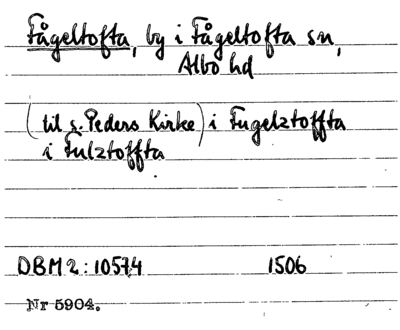 Fågeltofta, by i Fågeltofta sn,
Albo hd
(til s. Peders Kirke) i Fugelztoffta
i Fulztoffta
DBM 2: 10574 1506
Nr 5904.